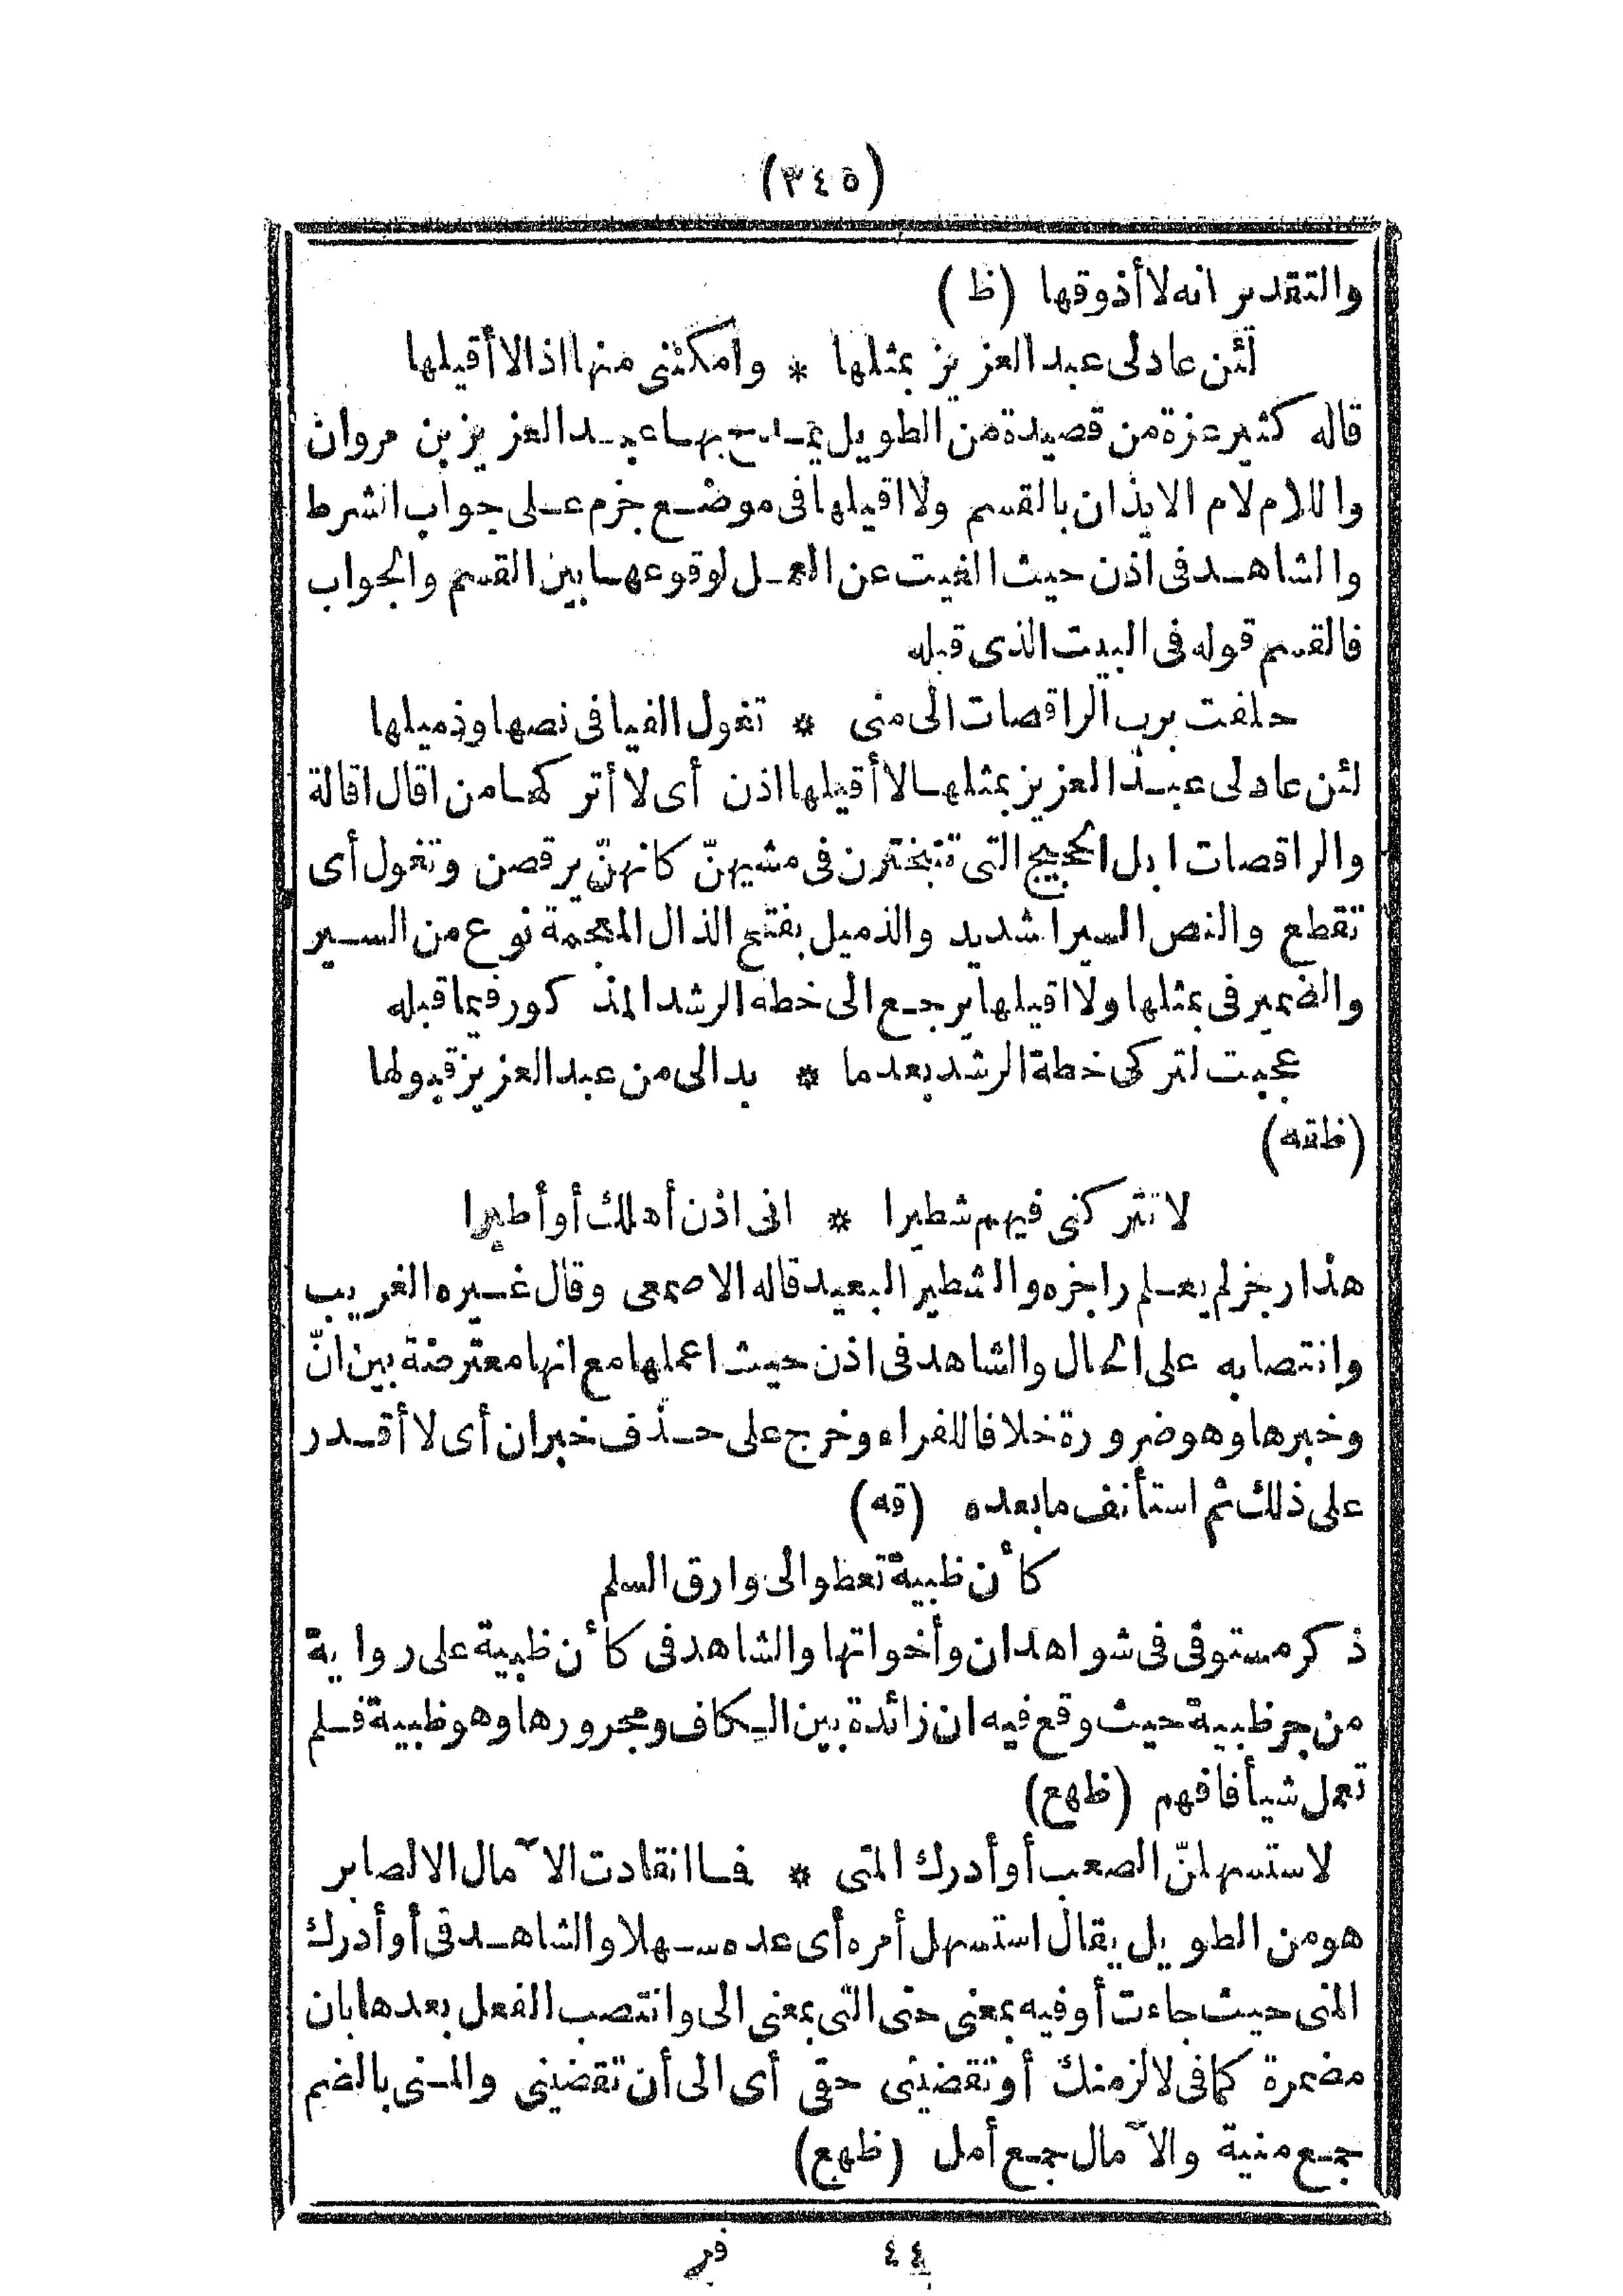 (٣٤٥)
والتقدير انه لا أذوقها (ظ)
لئن عاد لى عبد العزيز بمثلها * وأمكننى منها اذا لا أقيلها
قاله كثير عزة من قصيدة من الطويل يمدح بها عبد العزيز بن مروان
واللام لام الايذان بالقسم ولا اقيلها فى موضع جزم على جواب الشرط
والشاهد فى اذن حيث الغيت عن العمل لوقوعها بين القسم والجواب
فالقسم قوله فى البيت الذى قبله
حلفت برب الراقصات الى منى * تغول الفيافى نصها وذميلها
لئن عاد لى عبد العزيز بمثلها لا أقيلها اذن أى لا أتركها من اقال اقالة
والراقصات ابل الحجيج التى تتبخترن فى مشيهنّ كانهنّ يرقصن وتغول أى
تقطع والنص السير الشديد والذميل بفتح الذال المعجمة نوع من السير
والضمير فى بمثلها ولا اقيلها يرجع الى خطه الرشد المذكور فيما قبله
عجبت لتركى خطة الرشد بعدما * بدالى من عبد العزيز قبولها
(ظقه)
لا تتركنى فيهم شطيرا * انى اذن أهلك أو أطيرا
هذا رجز لم يعلم راجزه والشطير البعيد قاله الاصمعى وقال غيره الغريب
وانتصابه على الحال والشاهد فى اذن حيث اعملها مع انها معترضة بين انّ
وخبرها وهو ضرورة خلافا للفراء وخرج على حذف خبران أى لا أقدر
على ذلك ثم استأنف مابعده (قه)
كأن ظبية تعطو الى وارق السلم
ذكر مستوفى فى شواهد ان وأخواتها والشاهد فى كأن ظبية على رواية
من جر ظبية حيث وقع فيه ان زائدة بين الكاف ومجرورها وهو ظبية فلم
تعمل شيأ فافهم (ظهع)
لاستسهلنّ الصعب أو أدرك المنى * فما انقادت الآمال الا لصابر
هو من الطويل يقال استسهل أمره أى عده سهلا والشاهد فى أو أدرك
المنى حيث جاءت أو فيه بمعنى حتى التى بمعنى الى وانتصب الفعل بعدها بان
مضمرة كما فى لالزمنك أو تقضينى حقى أى الى أن تقضينى والمنى بالضم
جمع منية والآمال جمع أمل (ظهع)
٤٤ فر